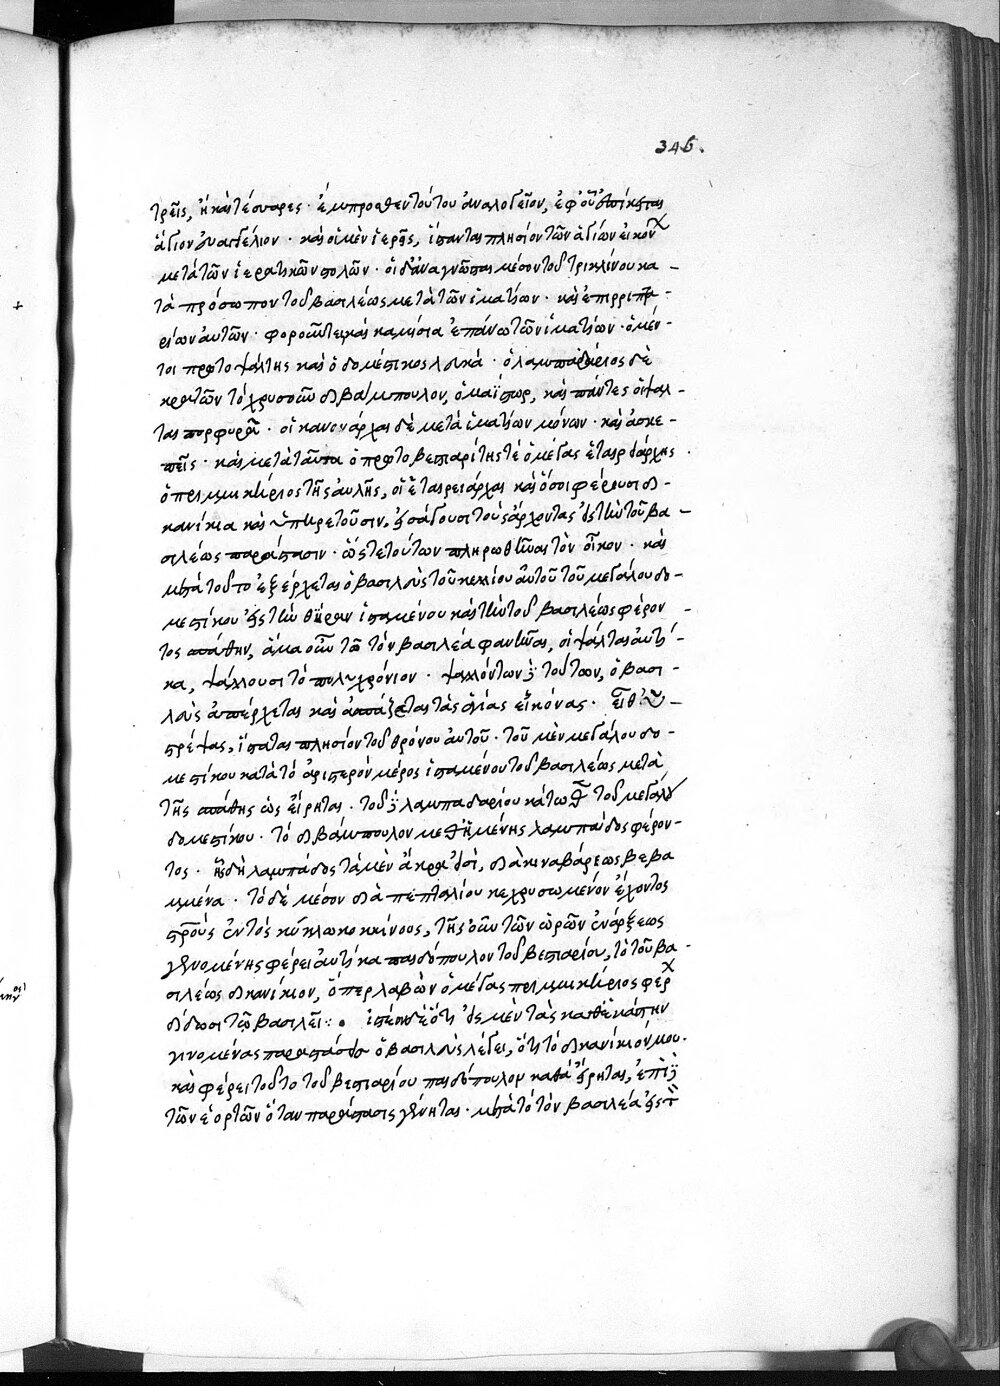 346.
τρεῖς, ἢ καὶ τέσσαρες · ἔμπροσθεν τούτου ἀναλογεῖον, ἐφ' οὗ ἵσταται τὸ
ἅγιον εὐαγγέλιον · καὶ οἱ μὲν ἱερεῖς, ἵστανται πλησίον τῶν ἁγίων εἰκόνων
μετὰ τῶν ἱερατικῶν στολῶν · οἱ δ' ἀναγνῶσται μέσον τοῦ τρικλίνου κα -
τὰ πρόσωπον τοῦ βασιλέως μετὰ τῶν ἱματίων · καὶ ἐπιρριπτα -
ρίων αὐτῶν · φοροῦντες καὶ καμίσια ἐπάνω τῶν ἱματίων · ὁ μέν -
τοι πρωτοψάλτης καὶ ὁ δομέστικος λευκά · ὁ λαμπαδάριος δὲ
κρατῶν τὸ χρυσοῦν διβάμπουλον, ὁ μαΐστωρ, καὶ πάντες οἱ ψάλ -
ται πορφυρᾶ · οἱ κανονάρχαι δὲ μετὰ ἱματίων μόνων · καὶ ἀσκε -
πεῖς · καὶ μετὰ ταῦτα ὁ πρωτοβεστιαρίτης τὲ ὁ μέγας ἑταιρειάρχης ·
ὁ πριμμικήριος τῆς αὐλῆς, οἱ ἑταιρειάρχαι καὶ ὅσοι φέρουσι δι -
κανίκια καὶ ὑπηρετοῦσιν. εἰσάγουσι τοὺς ἄρχοντας εἰς τὴν τοῦ βα -
σιλέως παράστασιν · ὥστε τούτων πληρωθῆναι τὸν οἶκον · καὶ
μετὰ τοῦτο ἐξέρχεται ὁ βασιλεὺς τοῦ κελλίου αὐτοῦ τοῦ μεγάλου δο -
μεστίκου εἰς τὴν θύραν ἱσταμένου καὶ τὴν τοῦ βασιλέως φέρον -
τος σπάθην, ἅμα οὖν τῷ τὸν βασιλέα φανῆναι, οἱ ψάλται αὐτί -
κα, ψάλλουσι τὸ πολυχρόνιον · ψαλλόντων δὲ τούτων, ὁ βασι -
λεὺς ἀπέρχεται καὶ ἀσπάζεται τὰς ἁγίας εἰκόνας · εἶθ' ὑπο -
στρέψας, ἵσταται πλησίον τοῦ θρόνου αὐτοῦ · τοῦ μὲν μεγάλου δο -
μεστίκου κατὰ τὸ ἀριστερὸν μέρος ἱσταμένου τοῦ βασιλέως μετὰ
τῆς σπάθης ὡς εἴρηται · τοῦ δὲ λαμπαδαρίου κάτωθεν τοῦ μεγάλου
δομεστίκου · τὸ διβάμπουλον μεθ' ἡμμένης λαμπάδος φέρον -
τος · ἧς δὴ λαμπάδος τὰ μὲν ἄκρα εἰσὶ, διὰ κινναβάρεως βεβα
μμένα · τὸ δὲ μέσον διὰ πεπταλίου κεχρυσωμένον ἔχοντος
σταυροὺς ἐντὸς κύκλω κοκκίνους, τῆς οὖν τῶν ὡρῶν ἐνάρξεως
γενομένης φέρει αὐτίκα παιδόπουλον τοῦ βεστιαρίου, τὸ τοῦ βα -
σιλέως δικανίκιον, ὅπερ λαβὼν ὁ μέγας πριμμικήριος φέρων
δίδωσι τῷ βασιλεῖ :· ἰστέον δὲ ὅτι εἰς μὲν τὰς καθ' ἑκάστην
γινομένας παραστάσεις ὁ βασιλεὺς λέγει, ὅτι τὸ δικανίκιόν μου ·
καὶ φέρει τοῦτο τοῦ βεστιαρίου παιδόπουλον καθὰ εἴρηται, ἐπὶ δὲ
τῶν ἑορτῶν ὅταν παράστασις γένηται · μετὰ τὸ τὸν βασιλέα εἰς τὸν